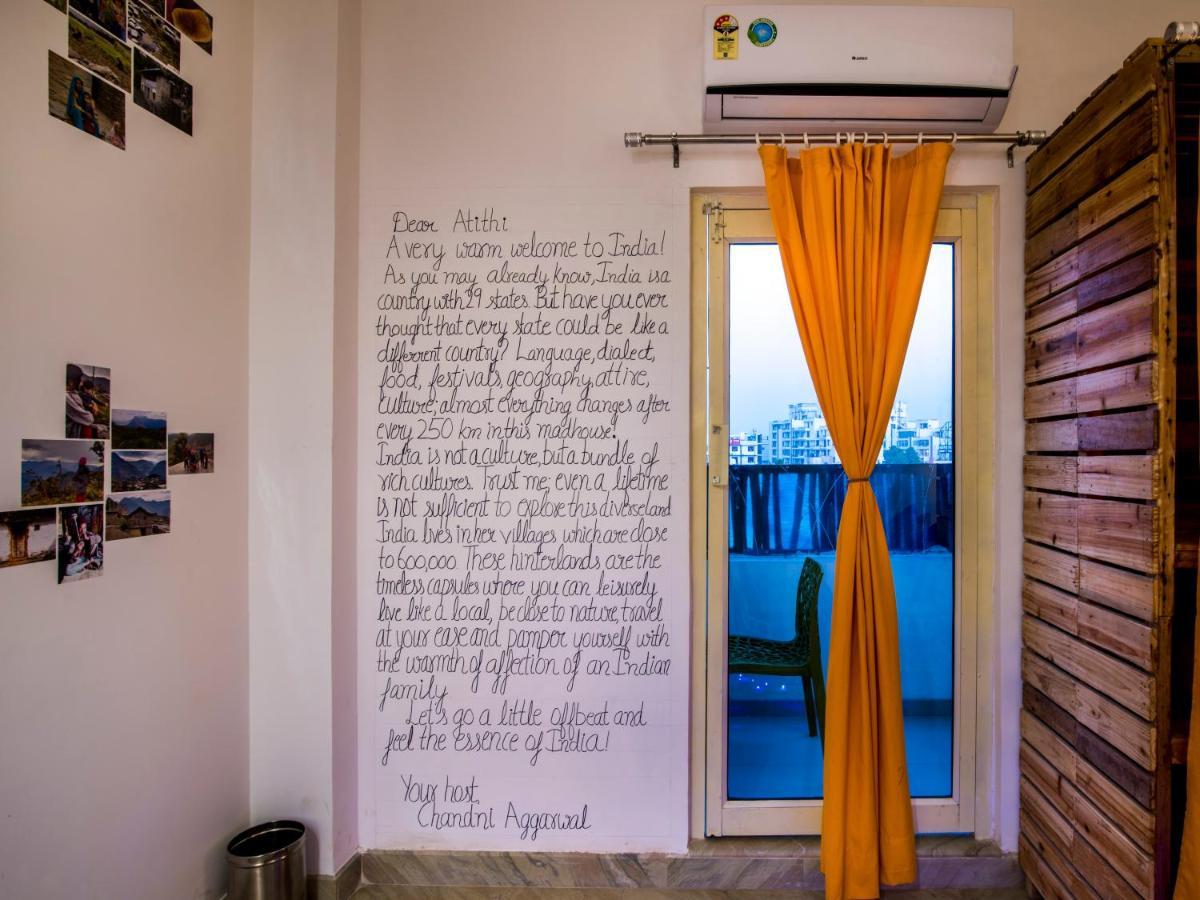 GREE
Dear Atithi
A very warm welcome to India!
As you may already know, India is a
country with 29 states. But have you ever
thought that every state could be like a
different country? Language, dialect,
food, festivals, geography, attire,
culture; almost everything changes after
every 250 km in this madhouse!
India is not a culture, but a bundle of
rich cultures. Trust me, even a lifetime
is not sufficient to explore this diverse land
India lives in her villages which are close
to 600,000. These hinterlands are the
timeless capsules where you can leisurely
live like a local, be close to nature, travel
at your ease and pamper yourself with
the warmth of affection of an Indian
family
Let's go a little offbeat and
feel the essence of India!
Your host,
Chandni Aggarwal